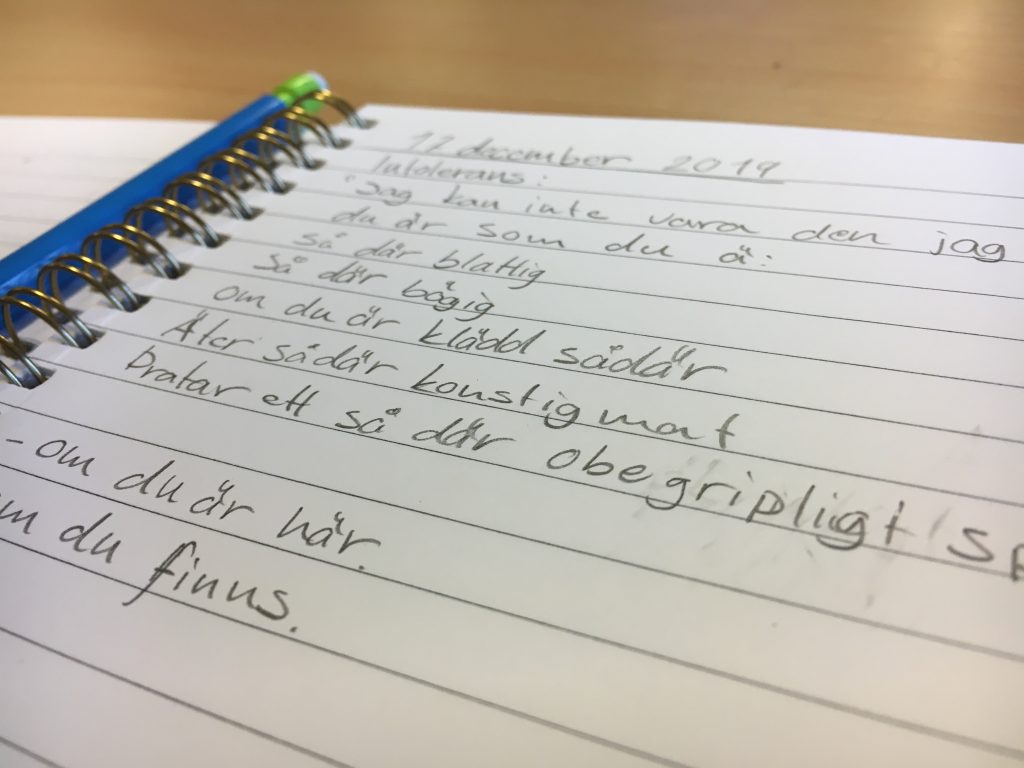 17 december 2019
Intolerans:
"Jag kan inte vara den jag
du är som du ä:
så där blattig
så där bögig
om du är klädd sådär
Äter sådär konstig mat
Pratar ett så där obegripligt
- om du är här.
du finns.